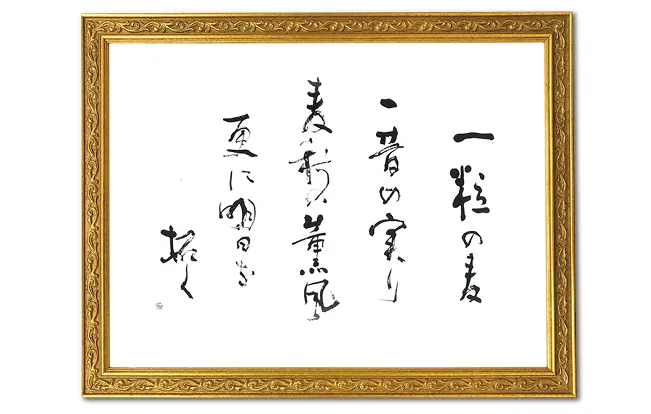 一粒の麦
一昔の実り
麦の穂の薫風
更に明日を
拓く